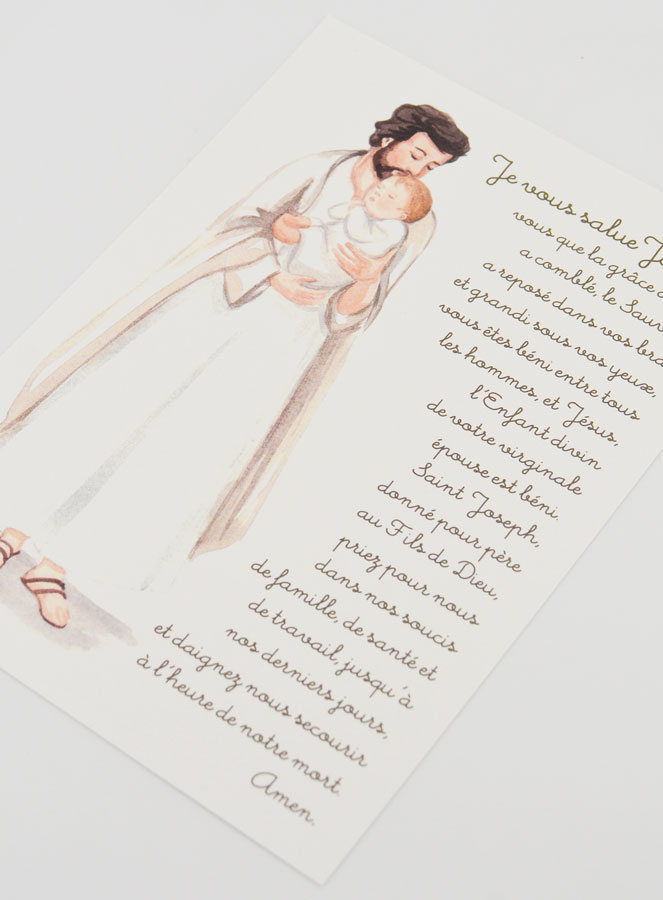 Je vous salue
vous que la grâce
a comblé, le
a reposé dans vos
et grandi sous vos yeux,
vous êtes béni entre tous
les hommes, et Jésus,
l'Enfant divin
de votre virginale
épouse est béni.
Saint Joseph,
donné pour père
au Fils de Dieu,
priez pour nous
dans nos soucis
de famille, de santé et
de travail, jusqu'à
nos derniers jours,
et daignez nous secourir
à l'heure de notre mort.
Amen.